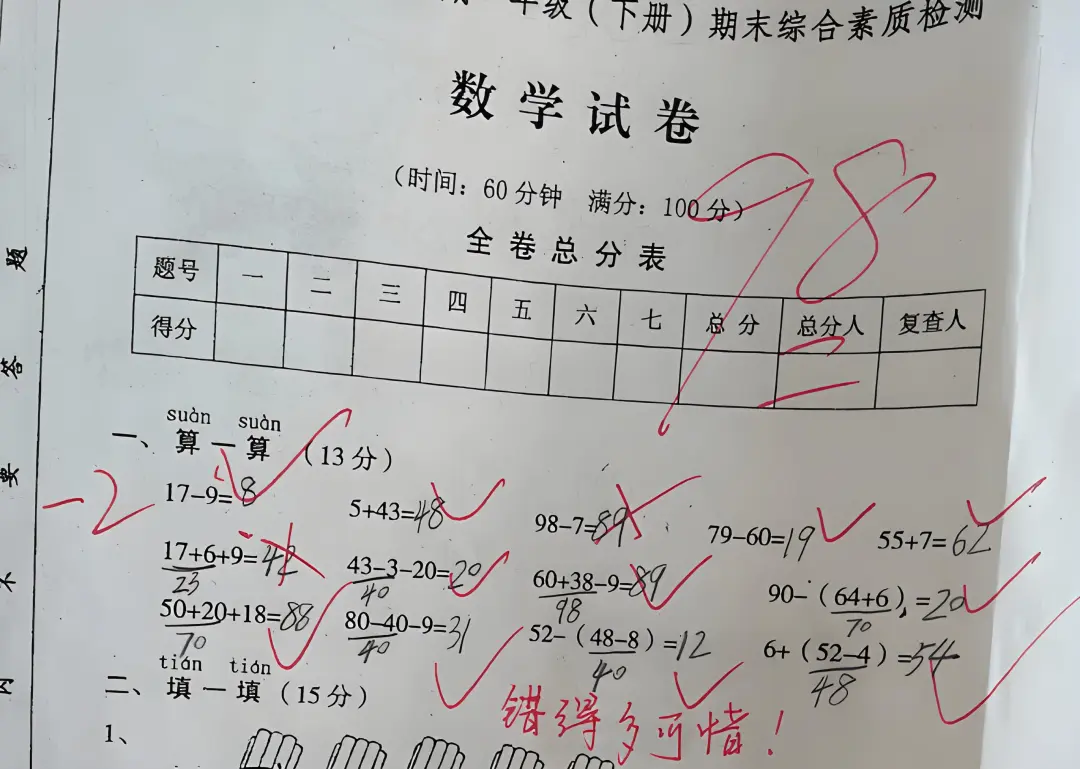 年级（下册）期末综合素质检测
数学试卷
（时间：60分钟 满分：100分）
98
全卷总分表
题号 一 二 三 四 五 六 七 总分 总分人 复查人
得分
suàn suàn
一、算一算（13分）
-2
17-9=8 5+43=48 98-7=89 79-60=19 55+7=62
17+6+9=42 43-3-20=20 60+38-9=89 90-（64+6）=20
23 40 98 70
50+20+18=88 80-40-9=31 52-（48-8）=12 6+（52-4）=54
70 40 40 48
tián tián
二、填一填（15分）
错得多可惜！
1、
题
答
要
不
内